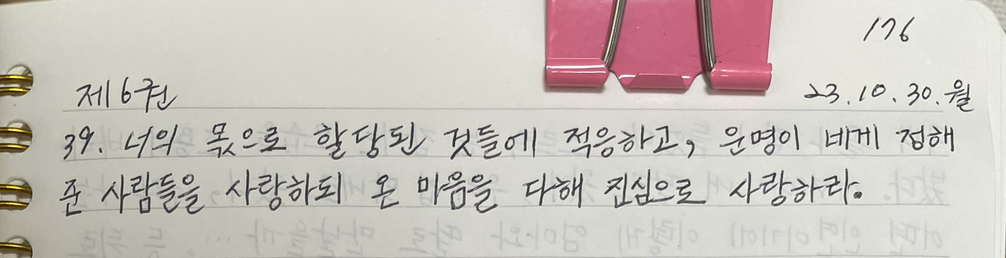 176
제6권
23.10.30.월
39. 너의 몫으로 할당된 것들에 적응하고, 운명이 네게 정해
준 사람들을 사랑하되 온 마음을 다해 진심으로 사랑하라.